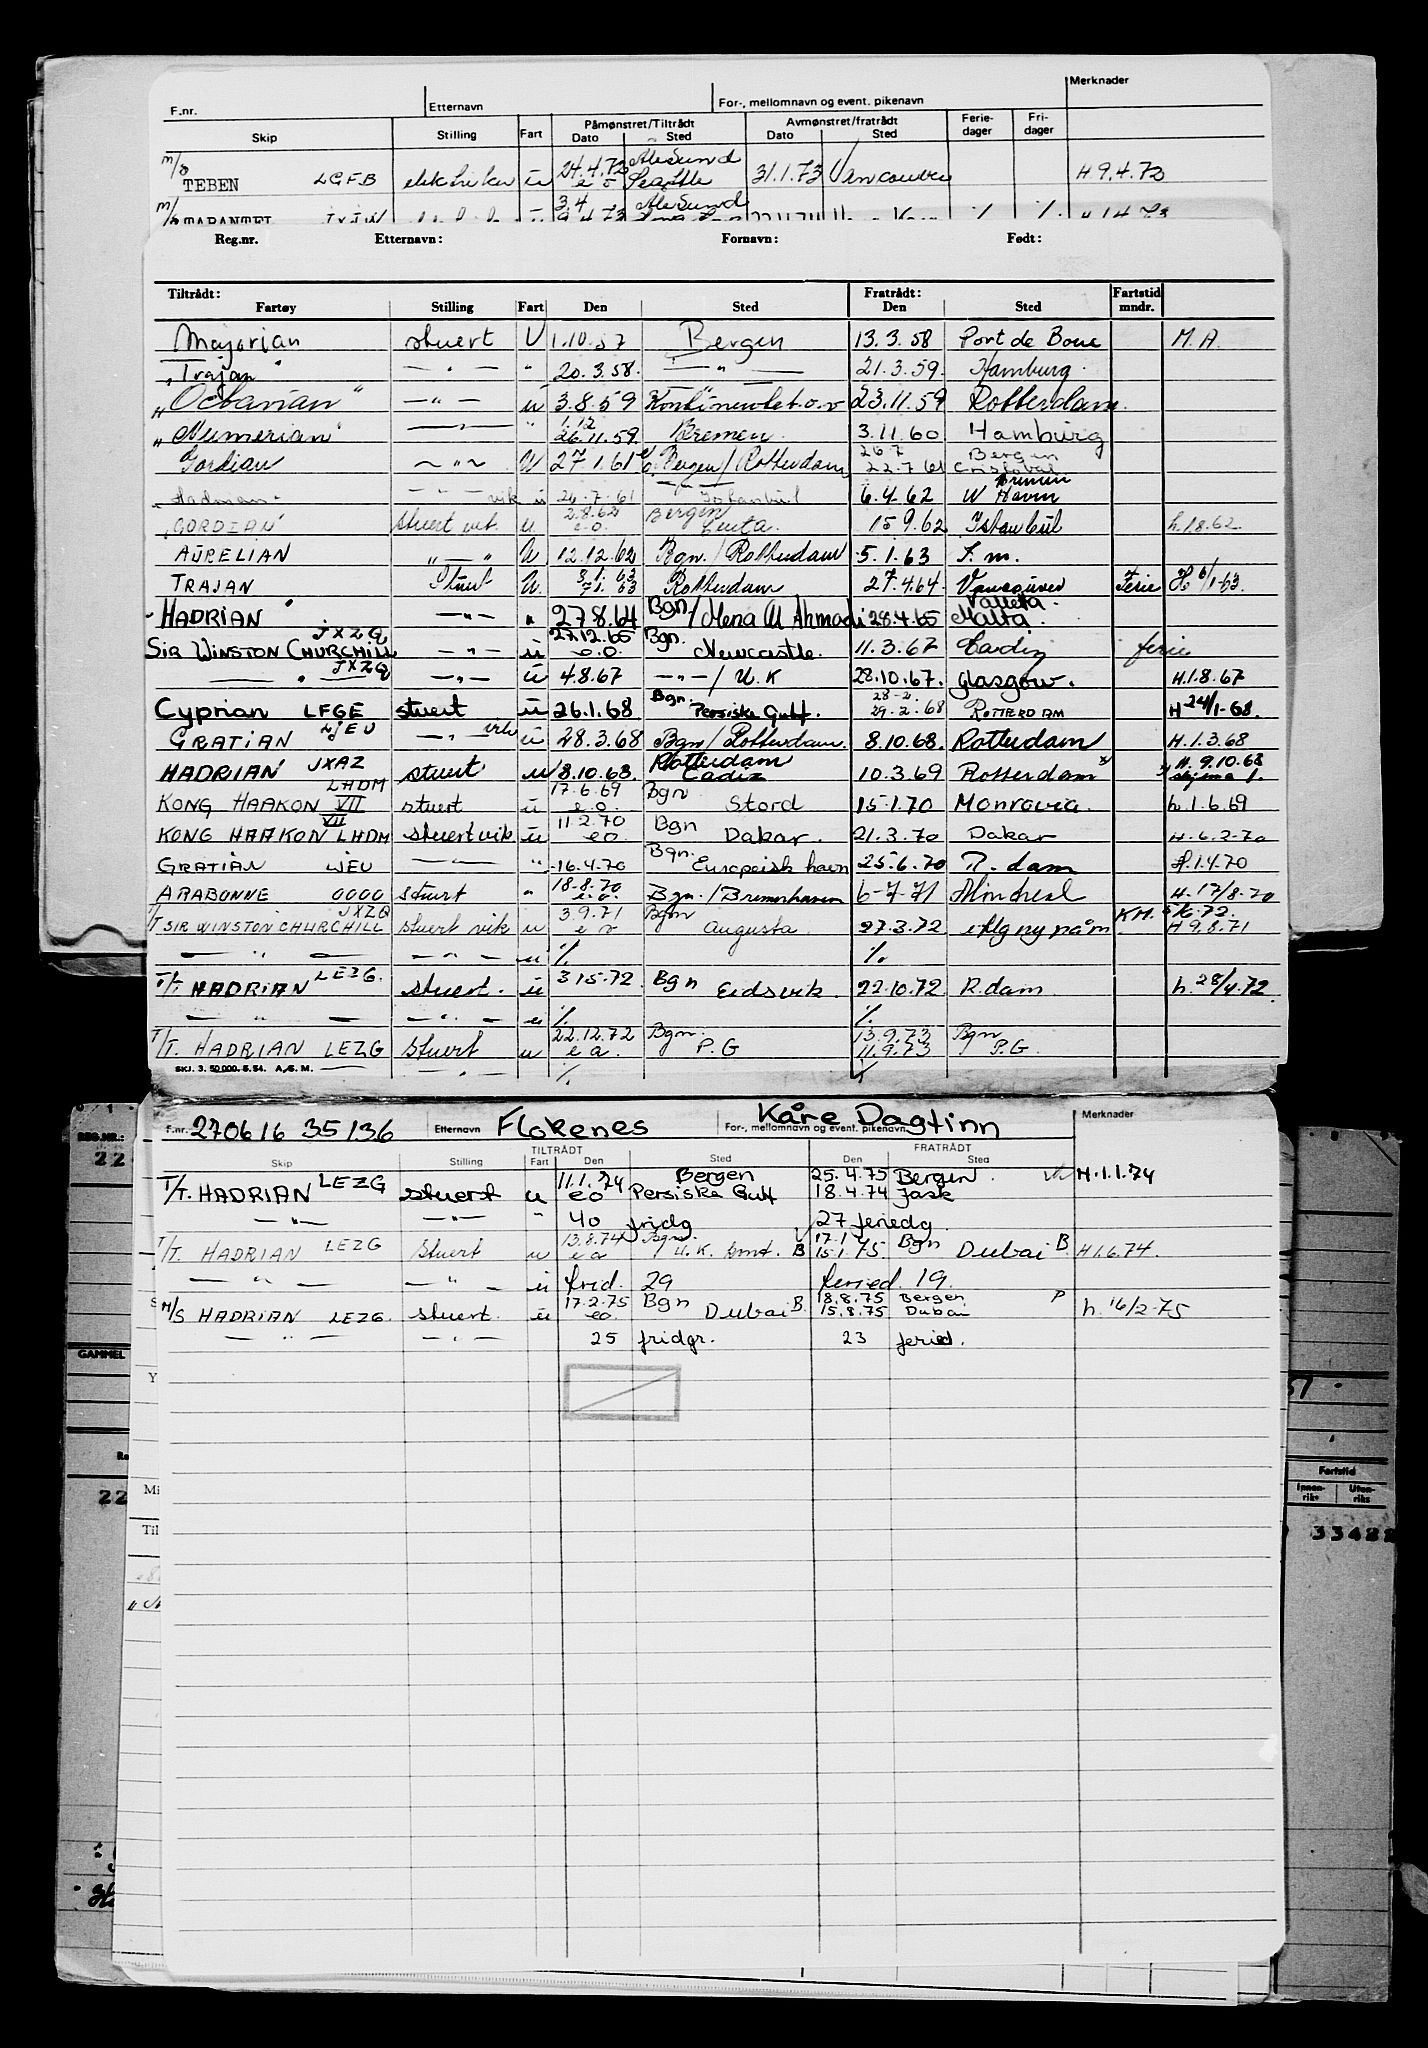 F.nr. Etternavn For-, mellomnavn og event. pikenavn Merknader
Skip Stilling Fart Påmønstret/Tiltrådt Dato Sted Avmønstret/fratrådt Dato Sted Ferie-dager Fri-dager
m/s TEBEN LGFB elektriker u 24.4.72 eo Ålesund Seattle 31.1.73 Vancouver H 9.4.72
m/s TARANTEL JXJW 3.4 9.4.73 Ålesund
Reg.nr. Etternavn: Fornavn: Født:
Tiltrådt: Fratrådt: Fartstid
Fartøy Stilling Fart Den Sted Den Sted mndr.
Majorian stuert U 1.10.57 Bergen 13.3.58 Port de Bouc M.A.
"Trajan" — " — " 20.3.58. — " — 21.3.59. Hamburg.
"Octavian" — " — u 3.8.59 Kontinentet o.v 23.11.59 Rotterdam.
"Numerian" — " — " 1.12 26.11.59. Bremen. 3.11.60 Hamburg
Gordian — " — U 27.1.61 Bergen / Rotterdam 26.7 22.7 61 Bergen Cristobal
— " — vik u 26.7.61 Istanbul 6.4.62 Bremen W Havn
"GORDIAN" stuert vik. u 2.8.62 e.o. Bergen Ceuta. 15 9.62 Istanbul h.1.8.62.
AURELIAN " — " U 12.12.62 Bgn. / Rotterdam 5.1.63 S.m.
TRAJAN Stuert U. 8.1.63 7.1.63 Rotterdam 27.4.64 Vancouver Ferie H 6/1-63
HADRIAN — " — " 27 8.64 Bgn / Mena Al Ahmadi 28.4.65 Valleta. Malta.
SIR WINSTON CHURCHILL JXZQ — " — u 27.12.65 e.o. Bgn. Newcastle. 11.3.67 Cadiz ferie
— " — JXZQ — " — u 4.8.67 — " — / U.K 28.10.67. Glasgow. H.1.8.67
Cyprian LFGE stuert u 26.1.68 Bgn. Persiske Gulf. 28-2 29.2.68 ROTTERDAM H 24/1-68.
GRATIAN LJEU — " — vik u 28.3.68 Bgn / Rotterdam. 8.10.68. Rotterdam H.1.3.68
HADRIAN JXAZ stuert u 8.10.68. Rotterdam Cadiz 10.3.69 Rotterdam H. 9.10.68
KONG HAAKON VII LHDM stuert u 17.6.69 e.o. Bgn Stord 15.1.70 Monrovia. h.1.6.69
KONG HAAKON VII LHDM stuert vik u 11.2.70 eo. Bgn Dakar. 21.3.70 Dakar H.6.2-70
GRATIAN LJEU — — " 16.4.70 Bgn. Europeisk havn 25.6.70 R.dam H.1.4.70
ARABONNE OOOO stuert " 18-8.70 e.o. Bgn. / Bremerhaven 6-7-71 Montreal H. 17/8-70
T/T SIR WINSTON CHURCHILL JXZQ stuert vik u 3.9.71 e o Bgn Augusta. 27.3.72 Alg ny påm KH. 5/6-72. H 9.8.71
— " — — " — u % %
T/T. HADRIAN LEZG. stuert. u 31 5.72 Bgn Eidsvik. 22.10.72 R.dam h. 28/4.72.
— " — — " — u % %
T/T. HADRIAN LEZG stuert u 22.12.72 e a. Bgn. P.G 13.9.73 11.9.73 Bgn P.G.
SKJ. 3. 50 000. 5. 54. A/S. M. — — " — % %
F.nr. 270616 35136 Etternavn Flokenes For-, mellomnavn og event. pikenavn Kåre Dagfinn Merknader
TILTRÅDT FRATRÅDT
Skip Stilling Fart Den Sted Den Sted
T/T. HADRIAN LEZG stuert u 11.1.74 eo Bergen Persiske Gulf 25.4.75 18.4.74 Bergen. Jask H.1.1.74
— " — — " — " 40 fridg 27 feriedg.
T/T. HADRIAN LEZG Stuert u 13.8.74 e a Bgn. / U.K. B 17.1 15.1.75 Bgn Dubai B. H 1.6.74.
— " — — " — u frid. 29 feried. 19.
M/S HADRIAN LEZG. stuert. u 17.2.75 eo. Bgn Dubai B. 18.8.75 15.8.75 Bergen Dubai P h. 16/2-75
— " — — " — 25 fridgr. 23 feried.
REG.NR.:
22
GAMMEL
22
Fartstid
Innen-riks Uten-riks
33482